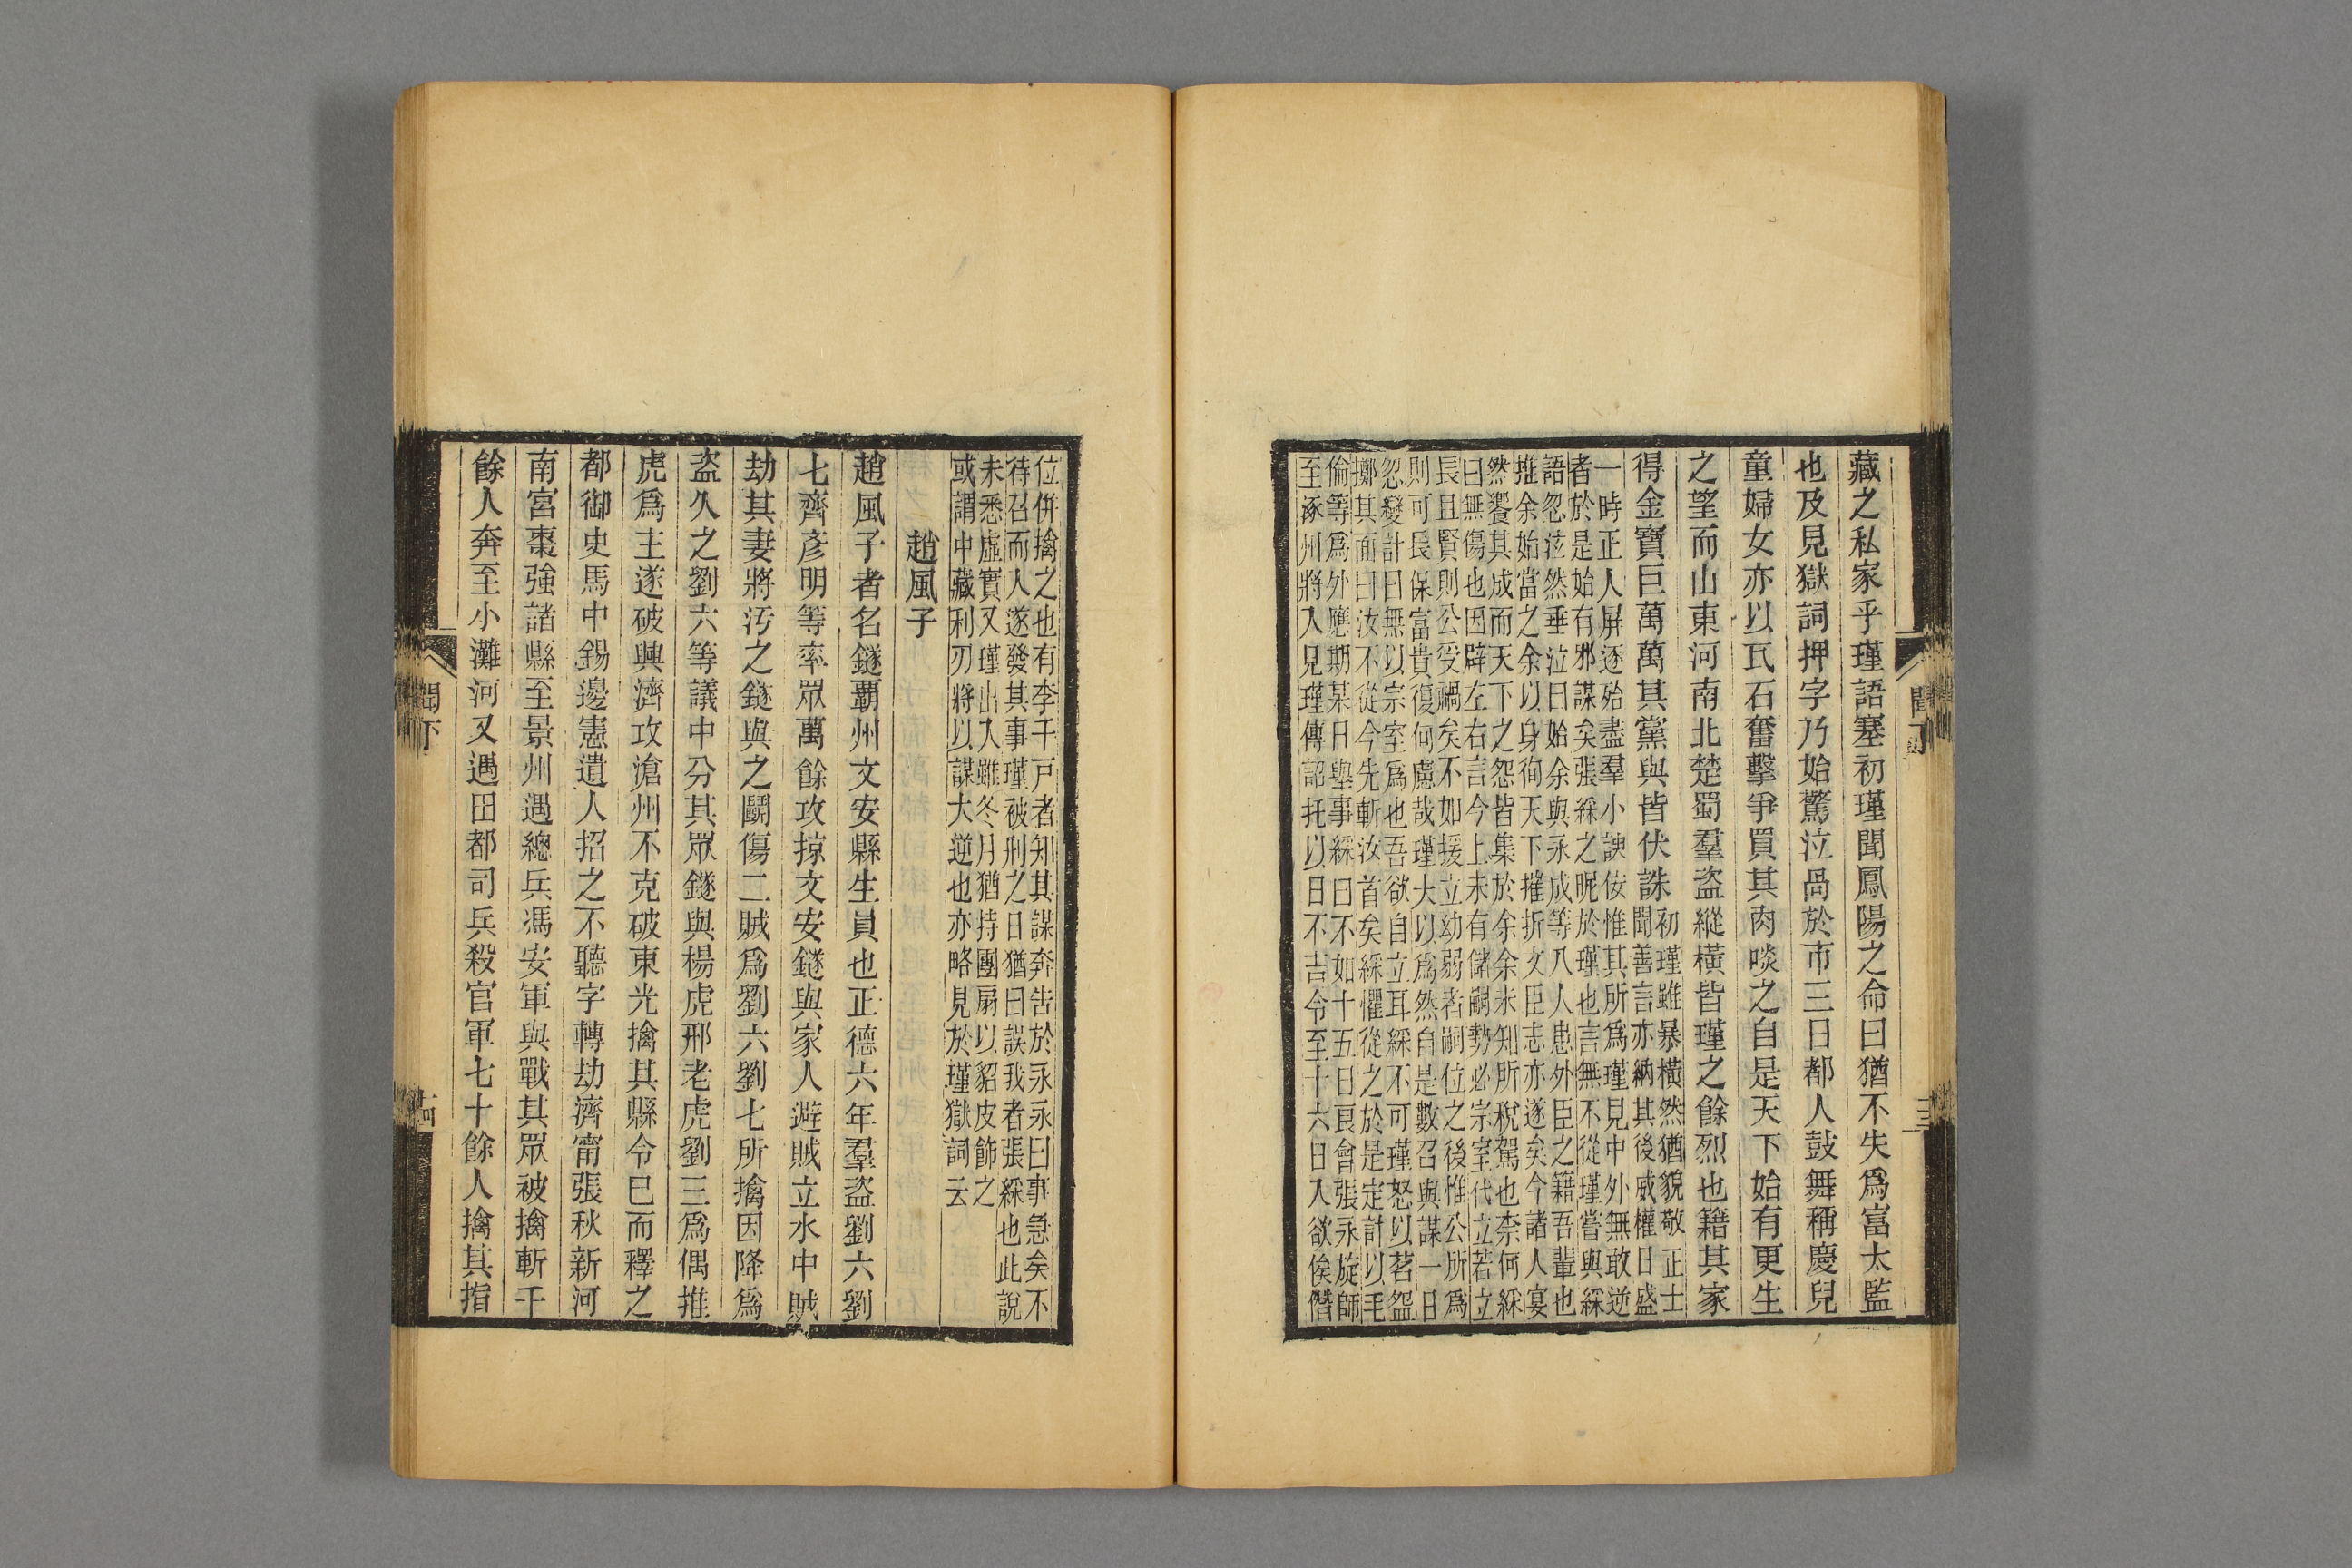 藏之私家乎瑾語塞初瑾聞鳳陽之命曰猶不失爲富太監
也及見獄詞押字乃始驚泣咼於市三日都人鼓舞稱慶兒
童婦女亦以瓦石奮擊爭買其肉啖之自是天下始有更生
之望而山東河南北楚蜀羣盜縱橫皆瑾之餘烈也籍其家
得金寶巨萬萬其黨與皆伏誅
初瑾雖暴橫然猶貌敬正士
聞善言亦納其後威權日盛
一時正人屏逐殆盡羣小諛佞惟其所爲瑾見中外無敢逆
者於是始有邪謀矣張綵之昵於瑾也言無不從瑾嘗與綵
語忽泫然垂泣曰始余與永成等八人患外臣之籍吾輩也
推余始當之余以身徇天下摧折文臣志亦遂矣今諸人宴
然饗其成而天下之怨皆集於余余未知所稅駕也柰何綵
曰無傷也因辟左右言今上未有儲嗣勢必宗室代立若立
長且賢則公受禍矣不如援立幼弱者嗣位之後惟公所爲
則可長保富貴復何慮哉瑾大以爲然自是數召與謀一日
忽變計曰無以宗室爲也吾欲自立耳綵不可瑾怒以茗盌
擲其面曰汝不從今先斬汝首矣綵懼從之於是定計以毛
倫等爲外應期某日舉事綵曰不如十五日良會張永旋師
至涿州將入見瑾傳詔托以日不吉令至十六日入欲俟僭
位併擒之也有李千戸者知其謀奔告於永永曰事急矣不
待召而入遂發其事瑾被刑之日猶曰誤我者張綵也此說
未悉虛實又瑾出入雖冬月猶持團扇以貂皮飾之
或謂中藏利刃將以謀大逆也亦略見於瑾獄詞云
趙風子
趙風子者名鐩霸州文安縣生員也正德六年羣盜劉六劉
七齊彥明等率眾萬餘攻掠文安鐩與家人避賊立水中賊
劫其妻將汚之鐩與之鬬傷二賊爲劉六劉七所擒因降爲
盜久之劉六等議中分其眾鐩與楊虎邢老虎劉三爲偶推
虎爲主遂破興濟攻滄州不克破東光擒其縣令已而釋之
都御史馬中錫邊憲遺人招之不聽字轉劫濟甯張秋新河
南宮棗強諸縣至景州遇總兵馮安軍與戰其眾被擒斬千
餘人奔至小灘河又遇田都司兵殺官軍七十餘人擒其指
聞下